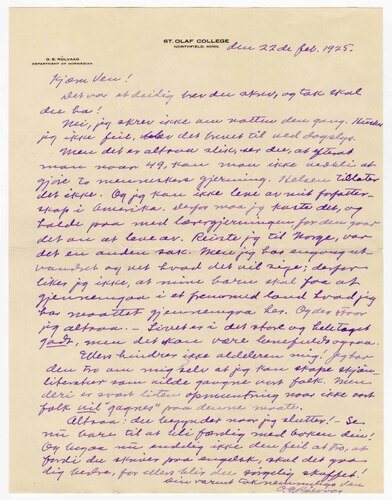 ST. OLAF COLLEGE
NORTHFIELD, MINN.
O. E. ROLVAAG
DEPARTMENT OF NORWEGIAN
den 22de feb. 1925.
Kjære Ven!
Det var et deilig brev du skrev, og tak skal
du ha!
Nei, jeg skrev ikke om natten den gang.
jeg ikke feil, blev det brevet til ved dagslys.
Men det er altsaa slik, ser du, at
man naar 49, kan man ikke
gjøre to menneskers gjerning. Helsen tillater
det ikke. Og jeg kan ikke leve av mit forfatter-
skap i Amerika. Derfor maa jeg kaste det, og
holde paa med lærergjerningen, for den gaar
det an at leve av. Reiste jeg til Norge, var
det en anden sak. Men jeg har engang ut-
vandret og vet hvad det vil sige; derfor
liker jeg ikke, at mine barn skal faa at
gjennemgaa i et fremmed land hvad jeg
har maattet gjennemgaa her. Og des
jeg altsaa. — Livet er i det store og hele taget
godt, men det kan være
Ellers hindrer ikke alderen mig. Jeg har
den tro om mig selv at jeg kan skape
literatur som vilde gavne vort folk. Men
deri er svært liten opmuntring naar ikke vort
folk vil "gagnes" paa denne maate.
Altsaa: du begynder naar jeg slutter! — Se
nu bare til at bli færdig med boken din!
Og begaa nu endelig ikke den feil at tro, at
fordi du skriver paa engelsk, skal det gaa
dig bedre, for ellers blir du skuffet!
Din